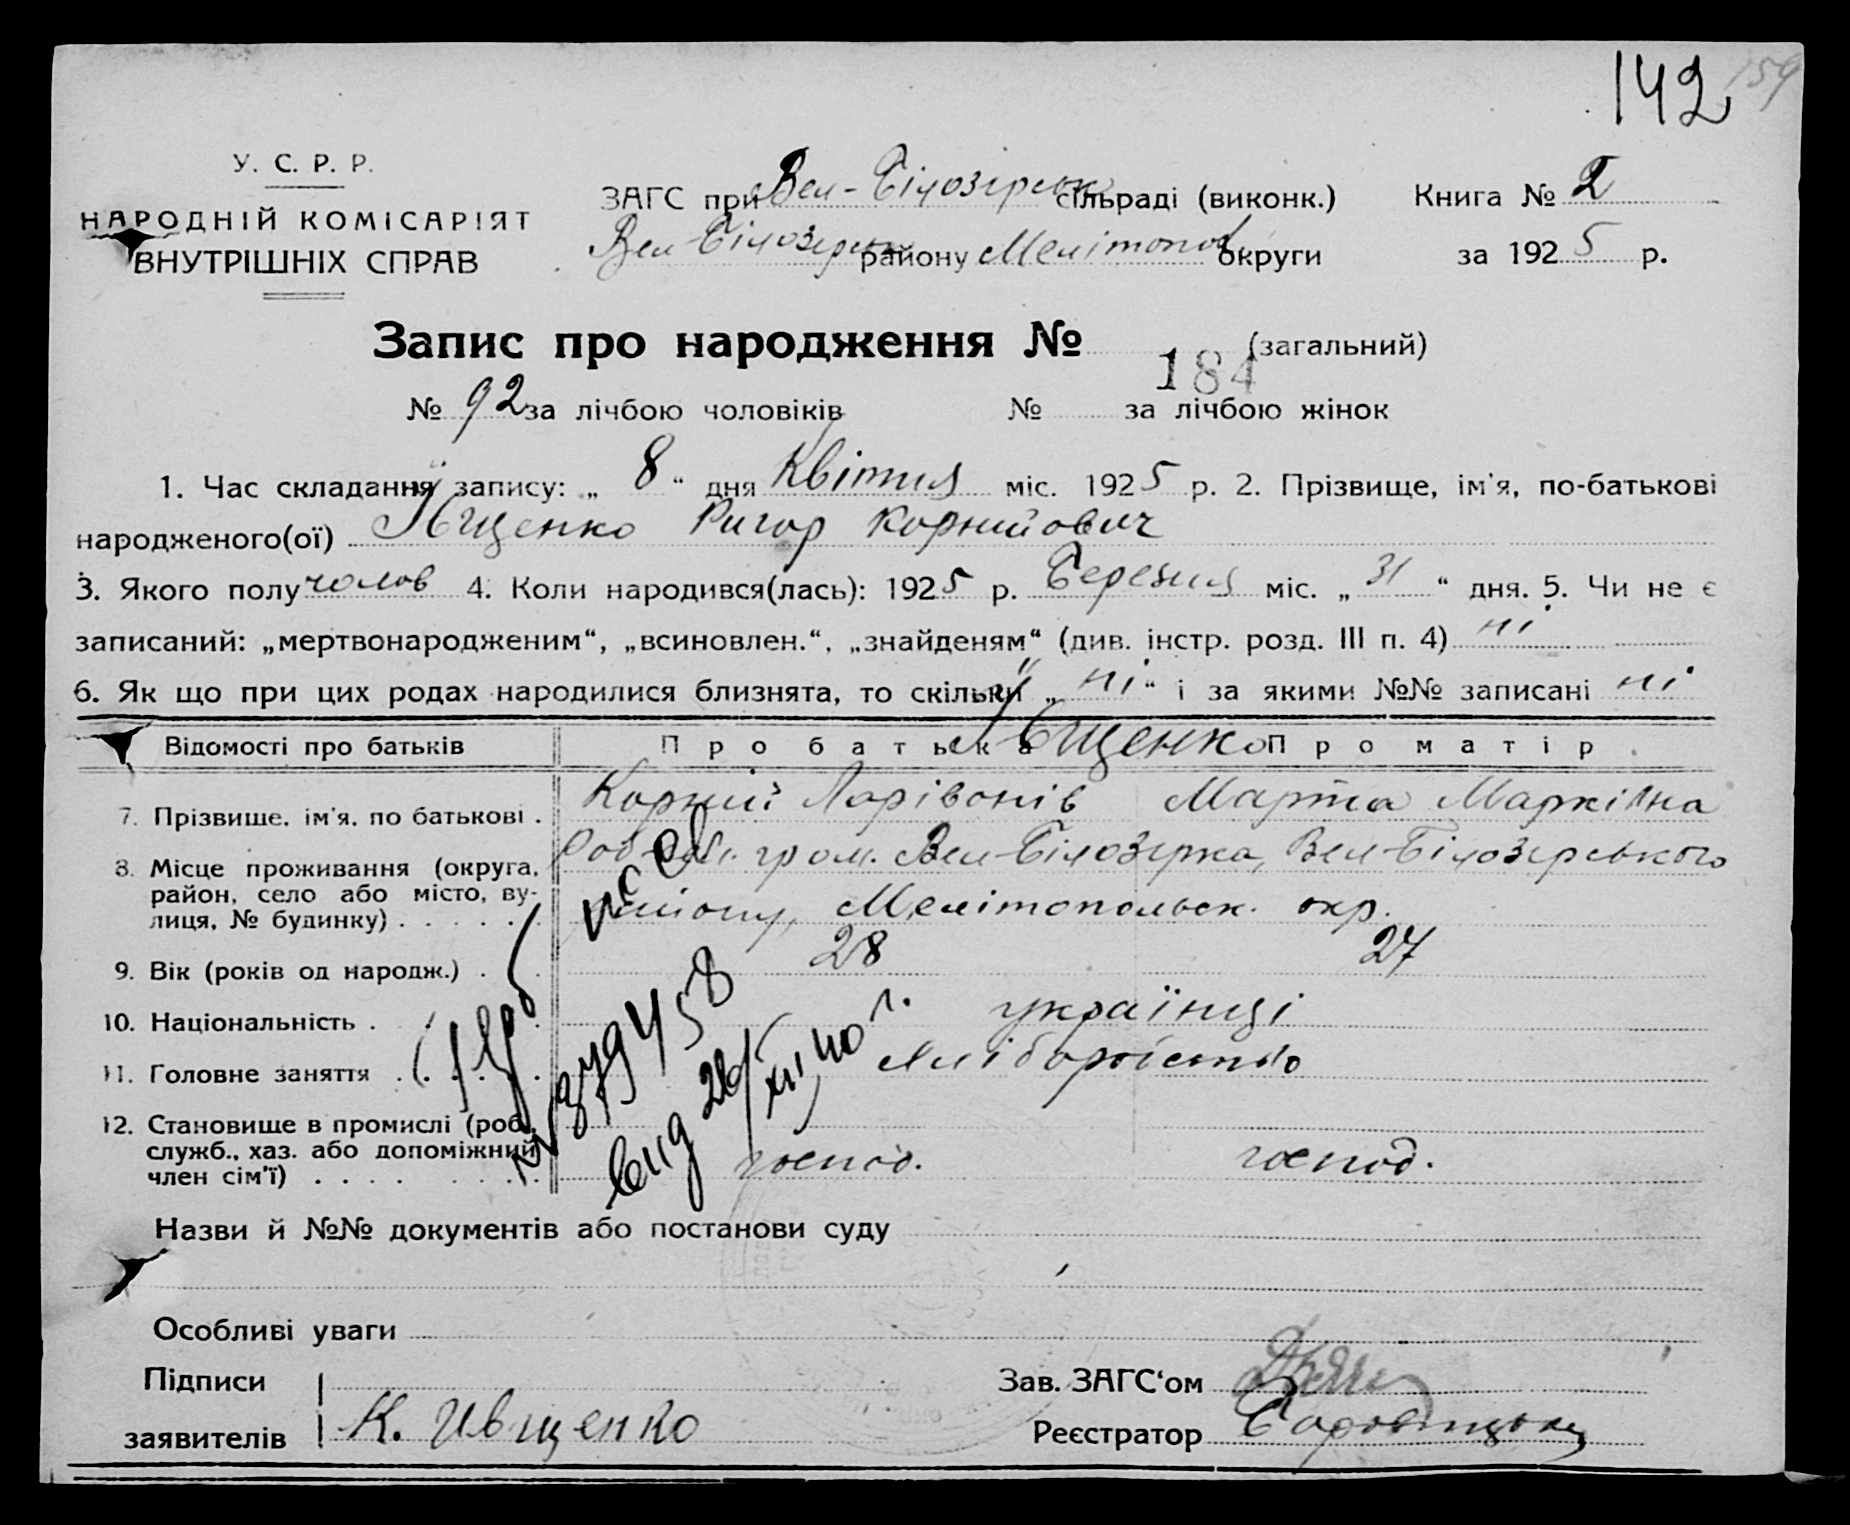 142 159
У. С. Р. Р.
НАРОДНІЙ КОМІСАРІЯТ
ВНУТРІШНІХ СПРАВ
ЗАГС при Вел-Білозірськ сільраді (виконк.) Книга № 2
Вел Білозірськ району Мелітопол округи за 1925 р.
Запис про народження № 184 (загальний)
№ 92 за лічбою чоловіків № за лічбою жінок
1. Час складання запису: „ 8 “ дня Квітня міс. 1925 р. 2. Прізвище, ім'я, по-батькові
народженого(ої) Івщенко Ригор Корнійович
3. Якого полу чолов 4. Коли народився(лась): 1925 р. Березня міс. „ 31 “ дня. 5. Чи не є
записаний: „мертвонародженим“, „всиновлен.“, „знайденям“ (див. інстр. розд. III п. 4) ні
6. Як що при цих родах народилися близнята, то скільки „ ні “ і за якими №№ записані ні
Відомості про батьків Про батька Івщенко Про матір
7. Прізвище, ім'я, по батькові . Корній Ларівонів Марта Марківна
8. Місце проживання (округа, гром. Вел-Білозірка, Вел-Білозірського
район, село або місто, ву-
лиця, № будинку) . . . . . . району, Мелітопольськ. окр.
9. Вік (років од народж.) . . 28 27
10. Національність . . . . українці
11. Головне заняття . . . . . хліборобство
12. Становище в промислі (роб.,
служб., хаз. або допоміжний господ. господ.
член сім'ї) . . . . . . . .
№ 379458
вид 26/XII 40 г.
Назви й №№ документів або постанови суду
Особливі уваги
Підписи Зав. ЗАГС‘ом
заявителів К. Ивщенко Реєстратор